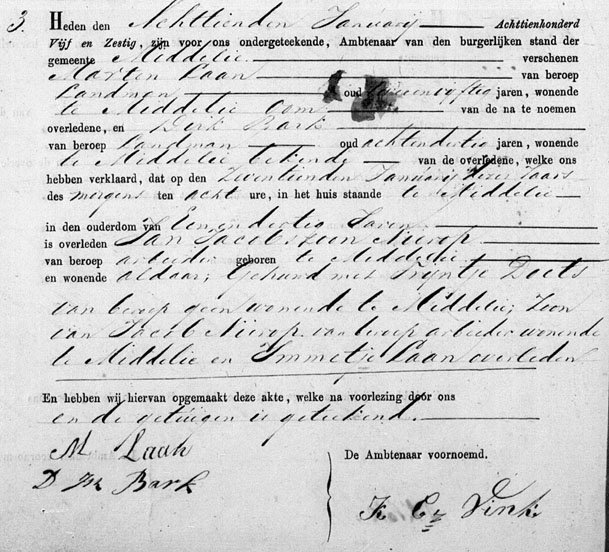 3. Heden den Achttienden Januarij Achttienhonderd
Vijf en Zestig, zijn voor ons ondergeteekende, Ambtenaar van den burgerlijken stand der
gemeente Middelie verschenen
Marten Laan van beroep
Landman oud jaren, wonende
te Middelie Oom van de na te noemen
overledene, en Dirk Bark
van beroep Landman oud achtendertig jaren, wonende
te Middelie bekende van de overledene, welke ons
hebben verklaard, dat op den Zeventienden Januarij dezes Jaars
des morgens ten acht ure, in het huis staande te Middelie
in den ouderdom van Een en dertig Jaren
is overleden Jan Jacobszoon Nierop
van beroep arbeider geboren te Middelie
en wonende aldaar, Gehuwd met Trijntje Doets
van beroep geen wonende te Middelie; Zoon
van Jacob Nierop van beroep arbeider wonende
te Middelie en Immetje Laan overleden
En hebben wij hiervan opgemaakt deze akte, welke na voorlezing door ons
en de getuigen is geteekend.
M Laan
D Bark
De Ambtenaar voornoemd.
K Cz Vink